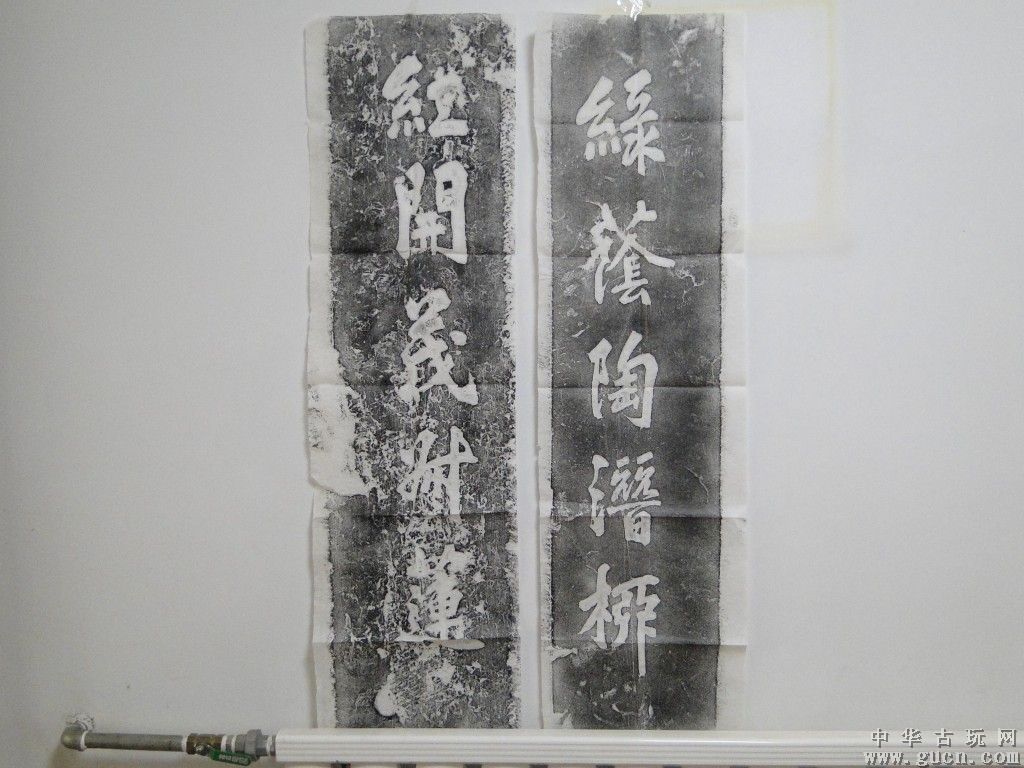 綠蔭陶潛柳
紅開茂叔蓮
中华古玩网
www.gucn.com